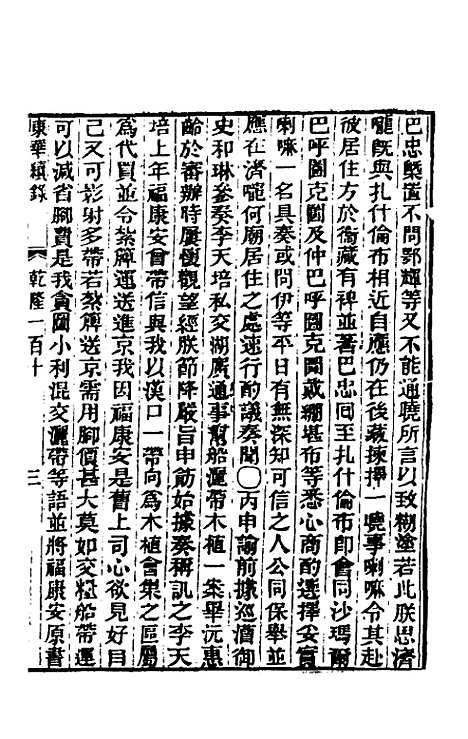 巴忠槩置不問鄂輝等又不能通曉所言以致糊塗若此朕思濟
嚨既與扎什倫布相近自應仍在後藏揀擇一曉事喇嘛令其赴
彼居住方於衞藏有裨並著巴忠同至扎什倫布即會同沙瑪爾
巴呼圖克圖及仲巴呼圖克圖歲琫堪布等悉心商酌選擇妥實
喇嘛一名具奏或問伊等平日有無深知可信之人公同保舉並
應在濟嚨何廟居住之處速行酌議奏聞〇丙申諭前據巡漕御
史和琳叅奏李天培私交湖廣通事幫船灑帶木植一案畢沅惠
齡於審辦時屢懷觀望經朕節降嚴旨申飭始據奏稱訊之李天
培上年福康安曾帶信與我以漢口一帶向爲木植會集之區屬
爲代買並令紮簰運送進京我因福康安是舊上司心欲見好目
己又可影射多帶若紮簰送京需用腳價甚大莫如交糧船帶運
可以減省腳費是我貪圖小利混交灑帶等語並將福康安原書
東華續錄
乾隆一百十
三